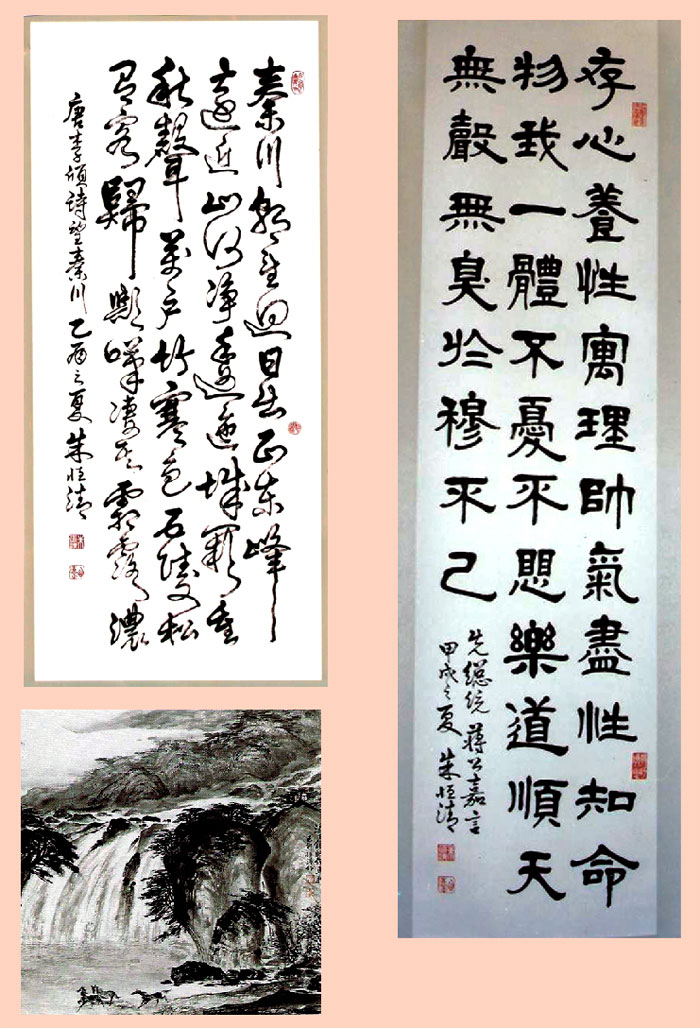 秦川朝望迥日出正東峰
遠近山河淨逶迤城闕重
秋聲萬戶竹寒色五陵松
有客歸歟嘆淒其霜露濃
唐李頎詩望秦川乙酉之夏朱恒清
存心養性寓理帥氣盡性知命
物我一體不憂不愳樂道順天
無聲無臭於穆不已
先總統蔣公嘉言
甲戌之夏朱恒清